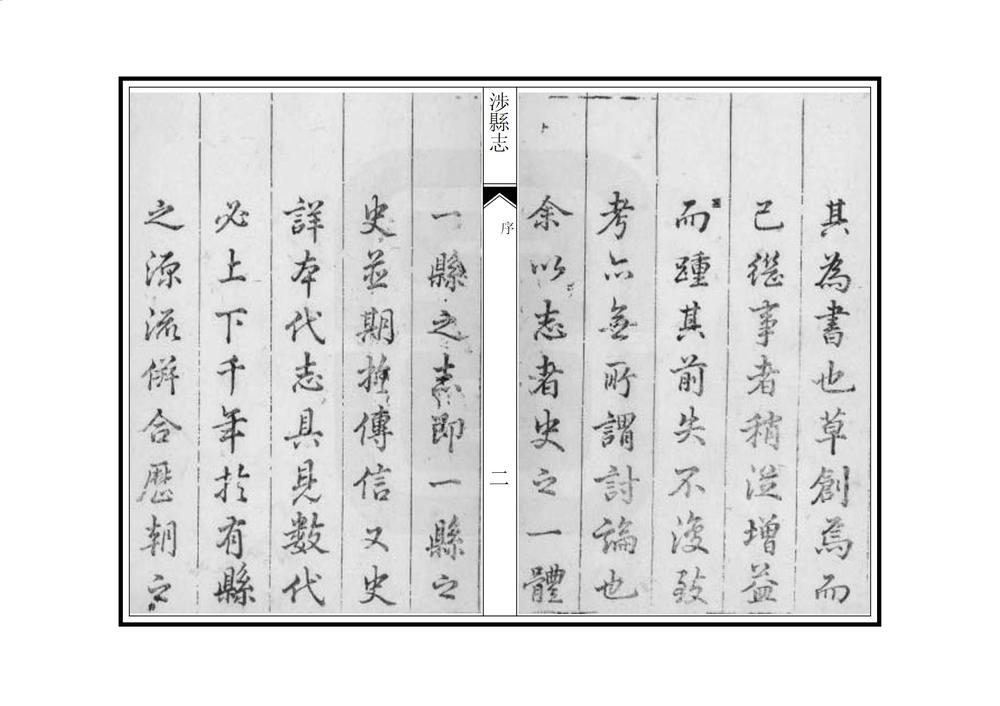 其為書也草創焉而
已繼事者稍從增益
而踵其前失不復致
考亦無所謂討論也
余以志者史之一體
涉縣志
序
二
一縣之志即一縣之
史並期於傳信又史
詳本代志具見數代
必上下千年於有縣
之源流併合歷朝之